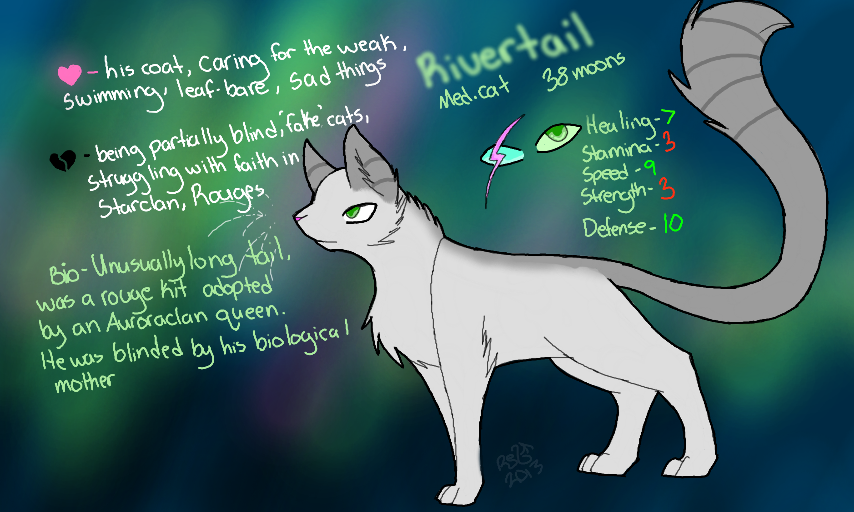 Rivertail
Med.cat
38 moons
- his coat, Caring for the weak,
swimming, leaf-bare, sad things
- being partially blind, 'fake' cats,
struggling with faith in
Starclan, Rouges
Healing-7
Stamina-3
Speed-9
Strength-3
Defense-10
Bio-Unusually long tail,
was a rouge kit adopted
by an Auroraclan queen.
He was blinded by his biological
mother
2013